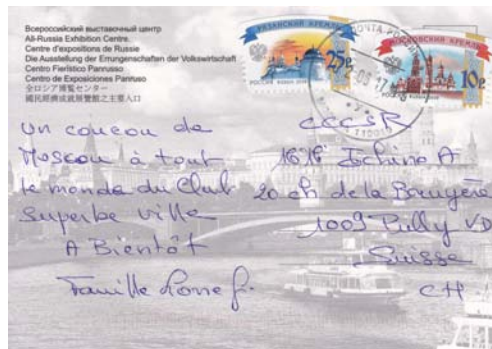 Всероссийский выставочный центр
All-Russia Exhibition Centre.
Centre d'expositions de Russie
Die Ausstellung der Errungenschaften der Volkswirtschaft
Centro Fieristico Panrusso
Centro de Exposiciones Panruso
全ロシア博覧センター
國民經濟成就展覽館之主要入口
РЯЗАНСКИЙ КРЕМЛЬ
25р
РОССИЯ ROSSIJA 2009
ПОЧТА РОССИИ
17
МОСКОВСКИЙ КРЕМЛЬ
10р
РОССИЯ ROSSIJA 2009
un coucou de
Moscou à tout
le monde du Club
Superbe ville
A Bientôt
Famille
CCCSR
Ischino A
20 ch de la Bruyère
1009 Pully VD
Suisse
CH